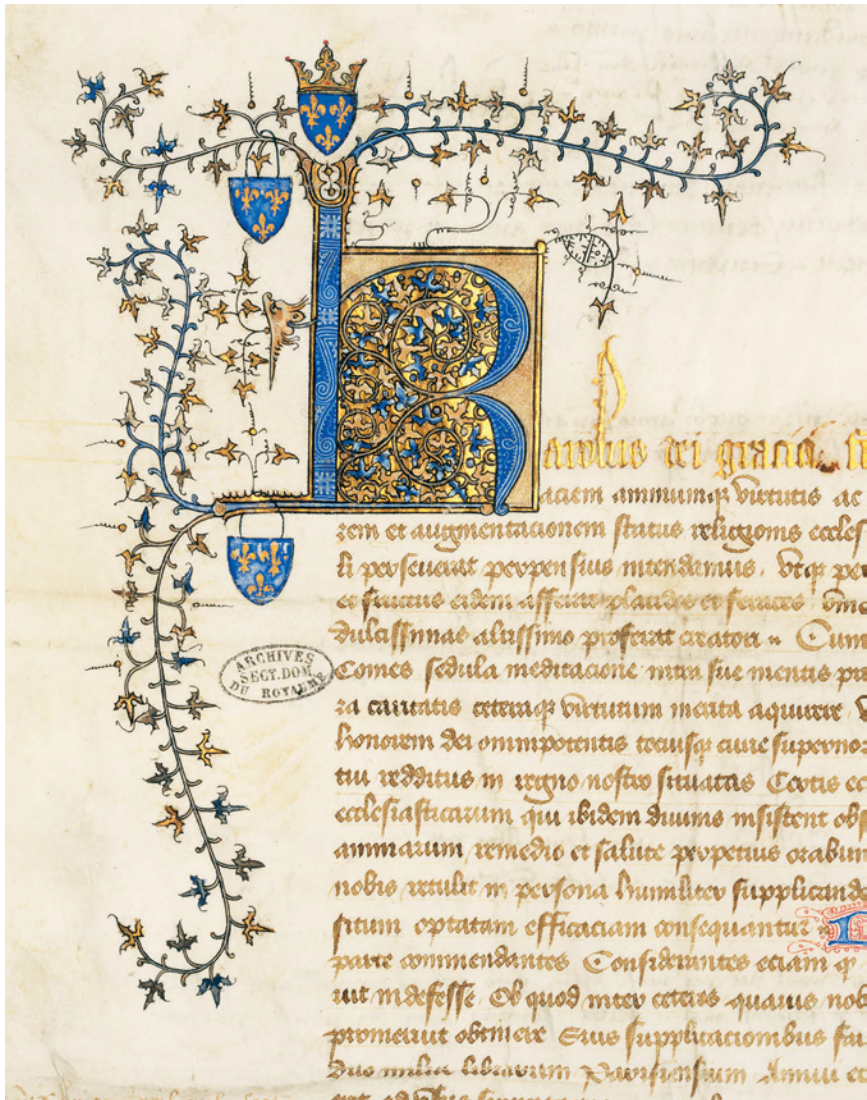 Karolus dei gracia
aciem animumque virtutis ac
rem et augmentacionem status religionis eccles
li perseverat perpensius intendimus. Utque per
et fructus eidem afferat placidos et feraces
dulcissimas altissimo proferat creatori Cum
Comes sedula meditacione intra sue mentis
ra caritatis ceterasque virtutum merita aquirere
honorem dei omnipotentis tociusque curie supernor
tui redditus in regno nostro situatas Certis ec
ecclesiasticarum qui ibidem divinis insistent obs
animarum remedio et salute perpetuis orabun
nobis retulit in persona humiliter supplicando
situm optatam efficaciam consequantur
parte commendantes Considerantes eciam
indefesse Ob quod inter ceteras quamis nob
promeruit obtinere Suis supplicacionibus fa
duo milia librarum Parisiensium Annui et
ARCHIVES
SECT. DOM
DU ROYAUME